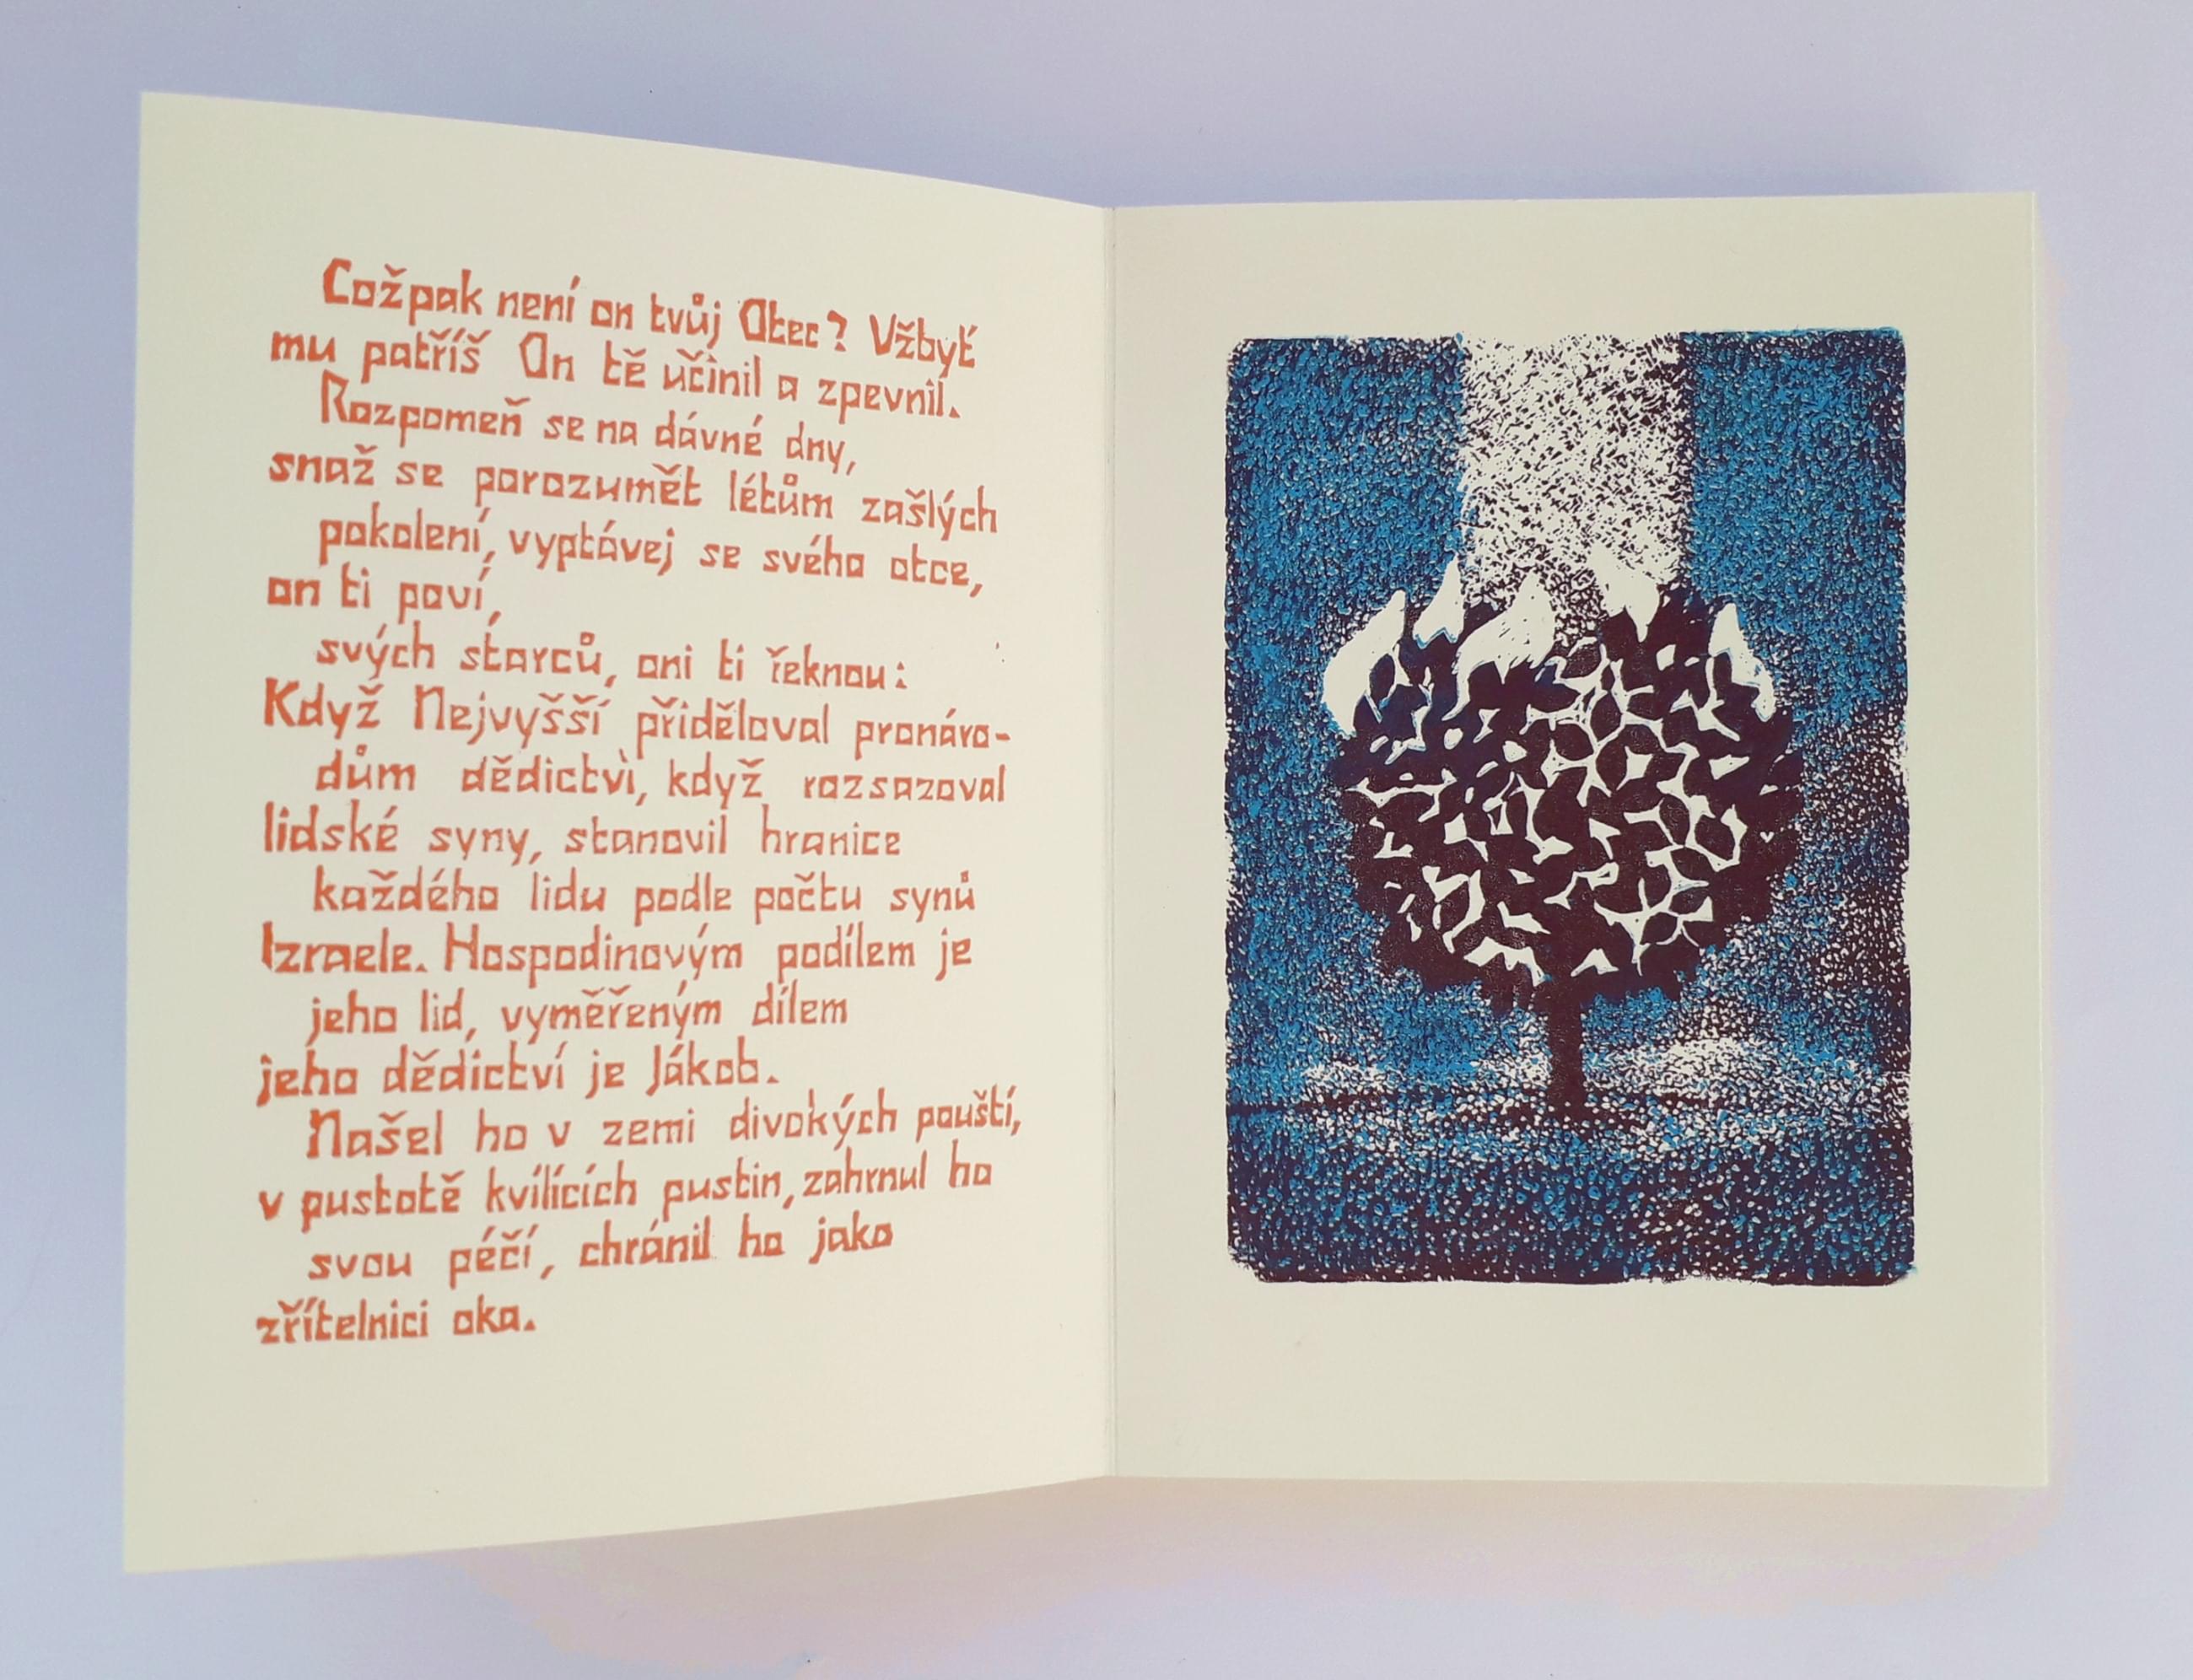 Cožpak není on tvůj Otec? Vžbyť
mu patříš On tě učinil a zpevnil.
Rozpomeň se na dávné dny,
snaž se porozumět létům zašlých
pokolení, vyptávej se svého otce,
on ti poví,
svých starců, oni ti řeknou:
Když Nejvyšší přiděloval pronáro-
dům dědictví, když rozsazoval
lidské syny, stanovil hranice
každého lidu podle počtu synů
Izraele. Hospodinovým podílem je
jeho lid, vyměřeným dílem
jeho dědictví je Jákob.
Našel ho v zemi divokých pouští,
v pustotě kvílících pustin, zahrnul ho
svou péčí, chránil ho jako
zřítelnici oka.